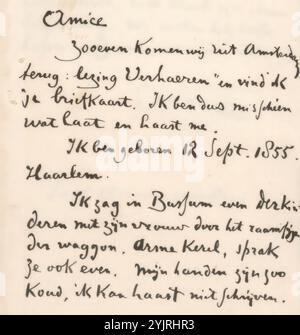 Amice
zooeven komen wij uit Amsterdam
terug: lezing Verhaeren" en vind ik
je briefkaart. Ik ben dus misschien
wat laat en haast me.
Ik ben geboren 12 Sept. 1855.
Haarlem.
Ik zag in Bussum even Derkin
deren met zijn vrouw door het raampje
der waggon. Arme Kerel, sprak
je ook even. Mijn handen zijn zoo
koud, ik kan haast niet schrijven.
alamy
Image ID: 2YJRHR3
www.alamy.com